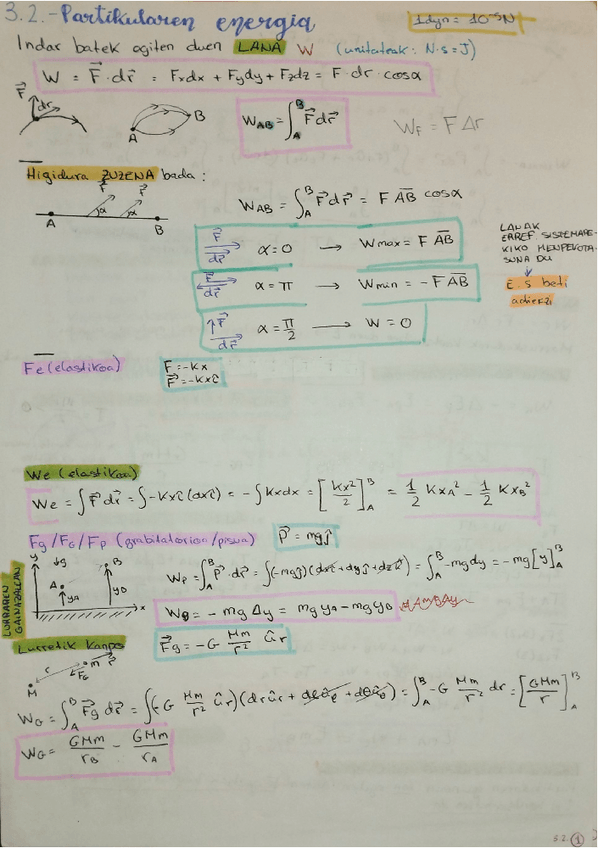 3.2.-Partikularen energia
1dyn = 10⁻⁵N
Indar batek egiten duen LANA W (unitateak: N·s=J)
W = F⃗·dr⃗ = Fxdx + Fydy + Fzdz = F·dr·cosα
F⃗ dr⃗
A B
W_AB = ∫_A^B F⃗dr⃗
W_F = FΔr
Higidura ZUZENA bada:
F⃗ F⃗
α α
A B
W_AB = ∫_A^B F⃗dr⃗ = F A̅B̅ cosα
F⃗ dr⃗ α=0 → Wmax = F A̅B̅
F⃗ dr⃗ α=π → Wmin = -F A̅B̅
F⃗ dr⃗ α=π/2 → W=0
LANAK
ERREF. SISTEMARE-
KIKO MENPEKOTA-
SUNA DU
E.S beti
adierazi
Fe (elastikoa)
F=-kx
F⃗=-kxî
We (elastikoa)
We = ∫F⃗dr⃗ = ∫-kxî(dxî) = -∫kxdx = [kx²/2]_A^B = 1/2 kx_A² - 1/2 kx_B²
Fg/FG/Fp (grabitatorioa/pisua)
P⃗ = mgĵ
LURRAREN
GAINAZALEAN
y ↓g
A B
yA yB
x
Wp = ∫_A^B P⃗·dr⃗ = ∫(-mgĵ)(dxî+dyĵ+dzk̂) = ∫_A^B -mgdy = -mg[y]_A^B
Wg = -mgΔy = mgyA - mgyB
Lurretik kanpo
F⃗g = -G Mm/r² ûr
r m r⃗
F⃗G
M
WG = ∫_A^B F⃗g dr⃗ = ∫(-G Mm/r² ûr)(drûr + dθûθ + dϕûϕ) = ∫_A^B -G Mm/r² dr = [GMm/r]_A^B
WG = GMm/rB - GMm/rA
3.2. 1